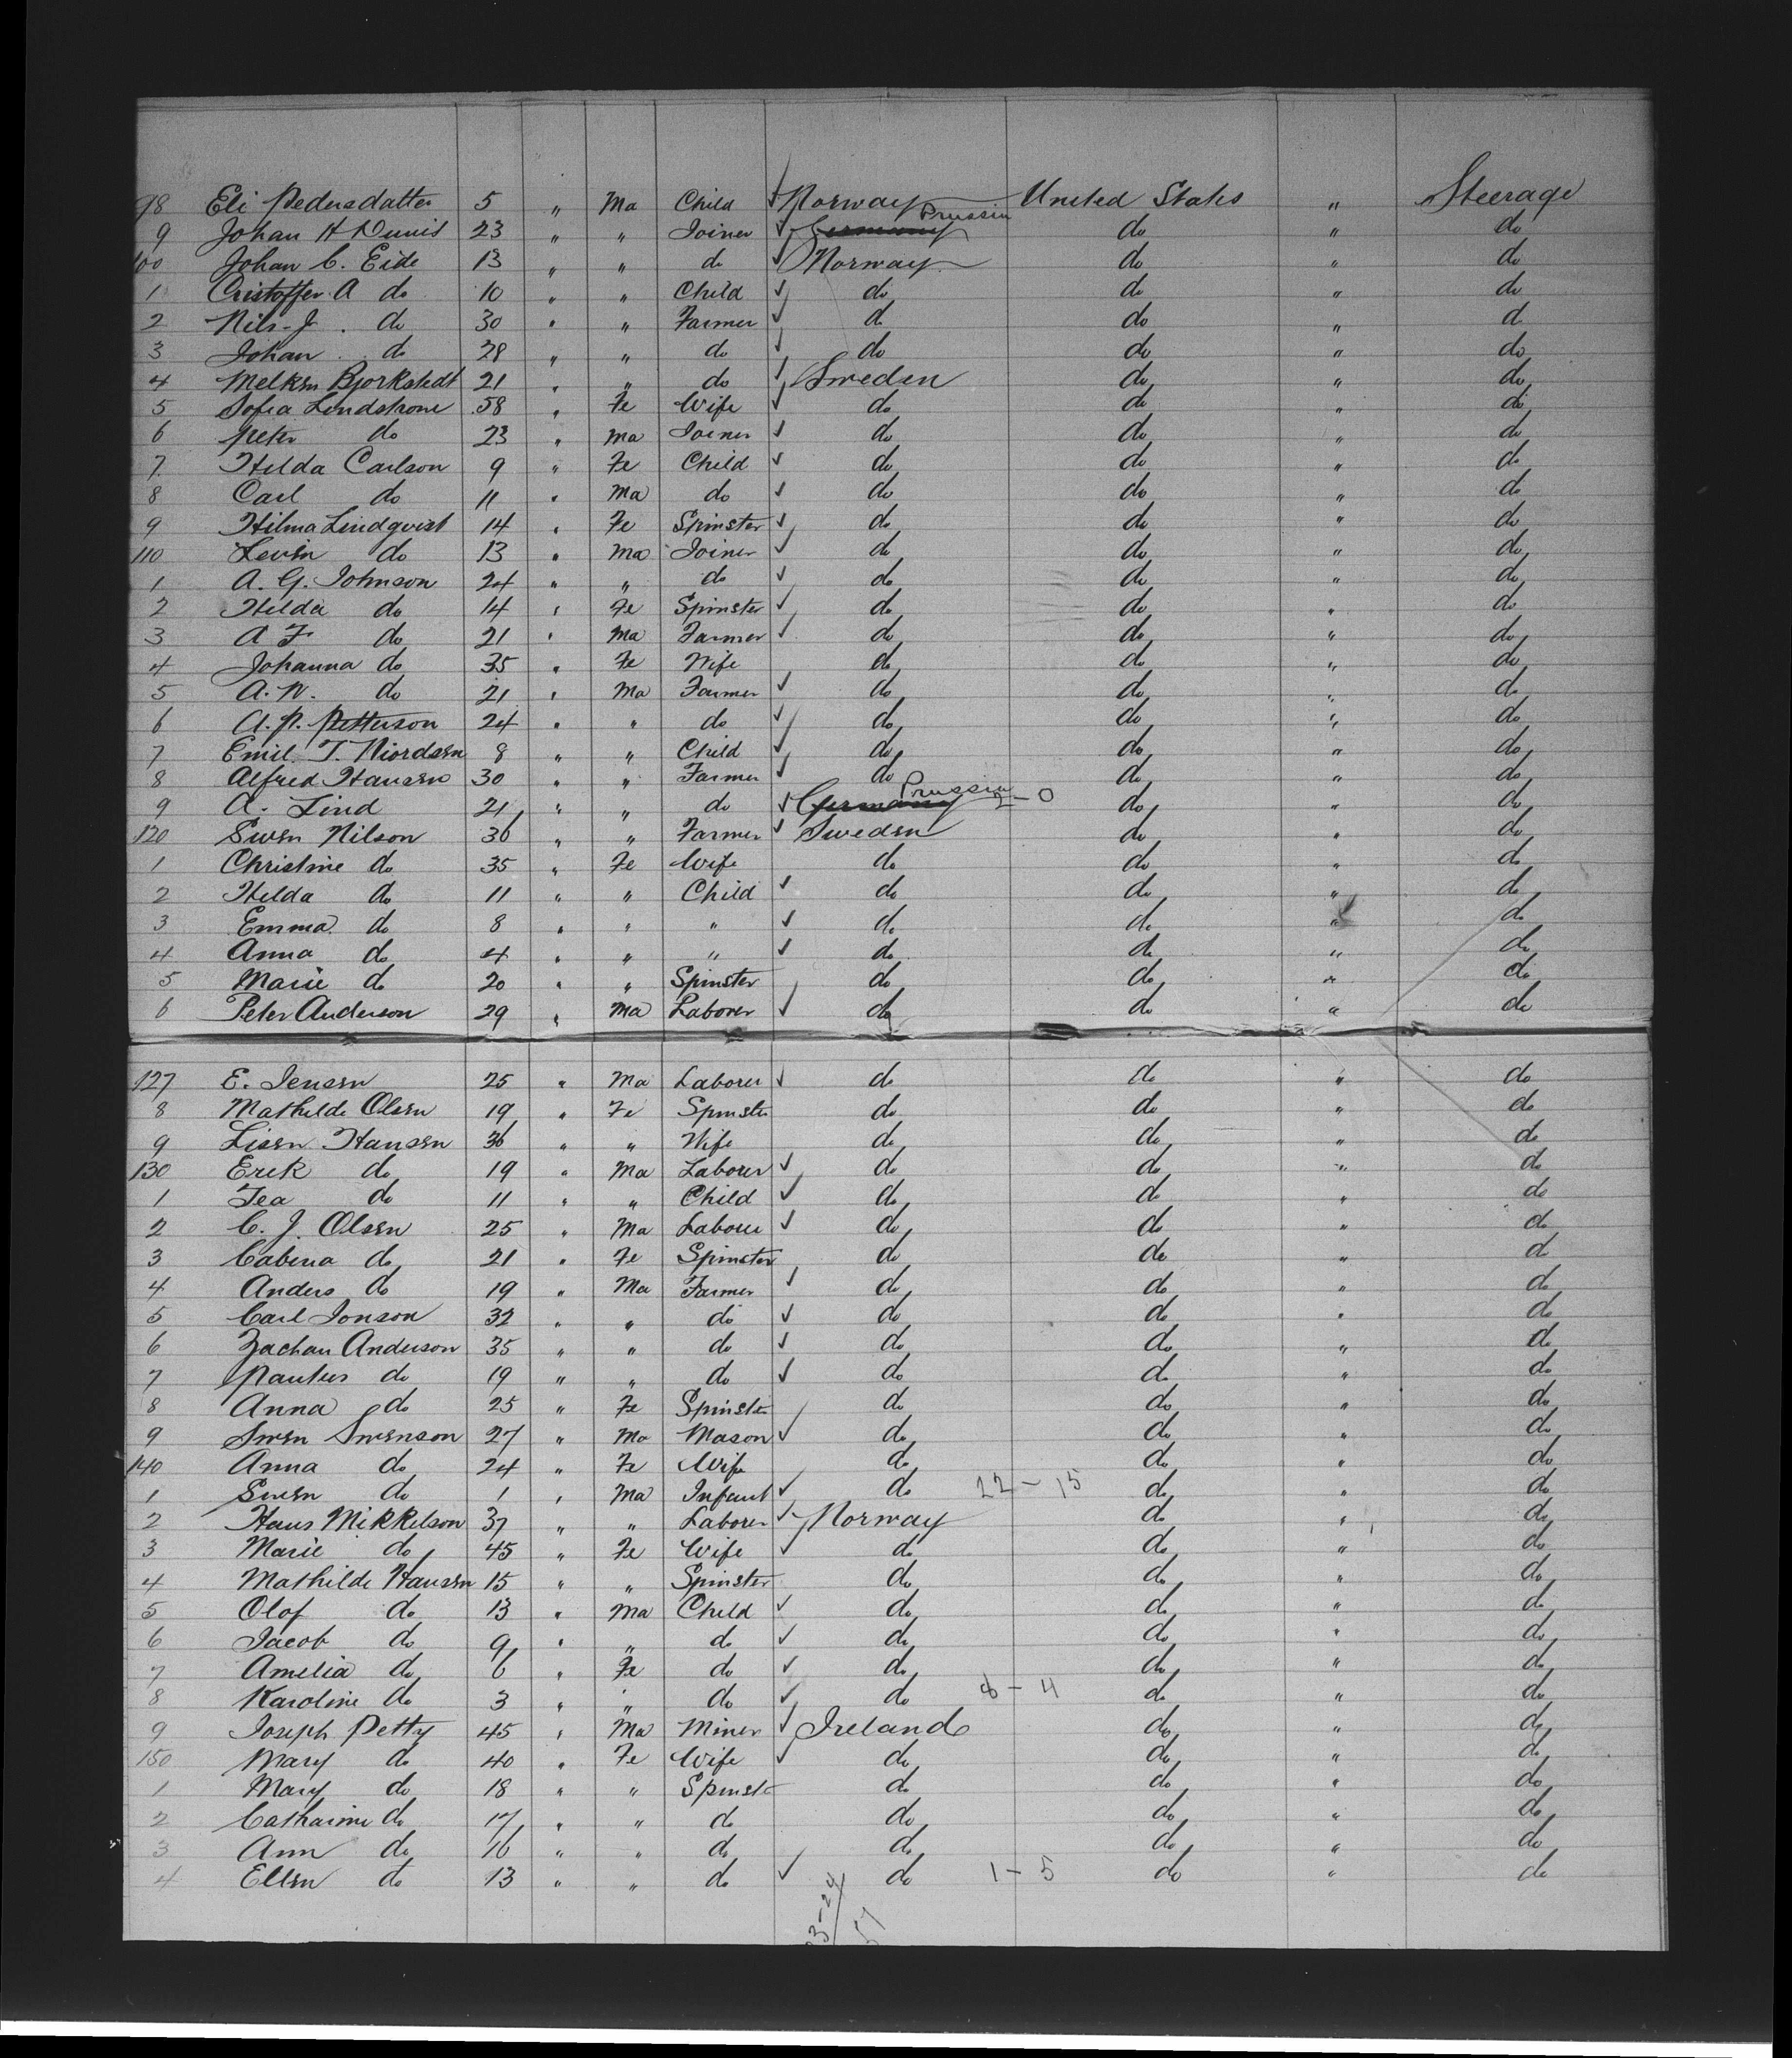 98 Eli Pedersdatter 5 " Ma Child ✓ Norway United States " Steerage
9 Johan H 23 " " Joiner ✓ Germany Prussia do " do
100 Johan C. Eide 13 " " do ✓ Norway do " do
1 Cristoffer A do 10 " " Child ✓ do do " do
2 Nils J. do 30 " " Farmer ✓ do do " do
3 Johan do 28 " " do ✓ do do " do
4 Melker Bjorkstedt 21 " " do ✓ Sweden do " do
5 Sofia Lindstrone 58 " Fe Wife ✓ do do " do
6 Peter do 23 " Ma Joiner ✓ do do " do
7 Hilda Carlson 9 " Fe Child ✓ do do " do
8 Carl do 11 " Ma do ✓ do do " do
9 Hilma Lindqvist 14 " Fe Spinster ✓ do do " do
110 Levin do 13 " Ma Joiner ✓ do do " do
1 A. G. Johnson 24 " " do ✓ do do " do
2 Hilda do 14 " Fe Spinster ✓ do do " do
3 A F do 21 " Ma Farmer ✓ do do " do
4 Johanna do 35 " Fe Wife do do " do
5 A. W. do 21 " Ma Farmer ✓ do do " do
6 A. P. Petterson 24 " " do ✓ do do " do
7 Emil T. Niordsen 8 " " Child ✓ do do " do
8 Alfred Hansen 30 " " Farmer ✓ do do " do
9 A. Lind 21 " " do ✓ Germany Prussia 2-0 do " do
120 Swen Nilson 36 " " Farmer ✓ Sweden do " do
1 Christine do 35 " Fe Wife do do " do
2 Hilda do 11 " " Child ✓ do do " do
3 Emma do 8 " " " ✓ do do " do
4 Anna do 4 " " " ✓ do do " do
5 Marie do 20 " " Spinster do do " do
6 Peter Anderson 29 " Ma Laborer ✓ do do " do
127 E. Jensen 25 " Ma Laborer ✓ do do " do
8 Mathilde Olsen 19 " Fe Spinster do do " do
9 Lisen Hansen 36 " " Wife do do " do
130 Erik do 19 " Ma Laborer ✓ do do " do
1 Tea do 11 " " Child ✓ do do " do
2 C. J. Olsen 25 " Ma Laborer ✓ do do " do
3 Cabina do 21 " Fe Spinster do do " do
4 Anders do 19 " Ma Farmer ✓ do do " do
5 Carl Jonson 32 " " do ✓ do do " do
6 Zachau Anderson 35 " " do ✓ do do " do
7 Pantus do 19 " " do ✓ do do " do
8 Anna do 25 " Fe Spinster do do " do
9 Swen Swenson 27 " Ma Mason ✓ do do " do
140 Anna do 24 " Fe Wife do do " do
1 Swen do 1 " Ma Infant ✓ do 22-15 do " do
2 Hans Mikkelson 37 " " Laborer ✓ Norway do " do
3 Marie do 45 " Fe Wife ✓ do do " do
4 Mathilde Hansen 15 " " Spinster do do " do
5 Olof do 13 " Ma Child ✓ do do " do
6 Jacob do 9 " " do ✓ do do " do
7 Amelia do 6 " Fe do ✓ do do " do
8 Karoline do 3 " " do ✓ do 8-4 do " do
9 Joseph Petty 45 " Ma Miner ✓ Ireland do " do
150 Mary do 40 " Fe Wife ✓ do do " do
1 Mary do 18 " " Spinster do do " do
2 Catharine do 17 " " do do do " do
3 Ann do 16 " " do do do " do
4 Ellen do 13 " " do ✓ do 1-5 do " do
33-24
57